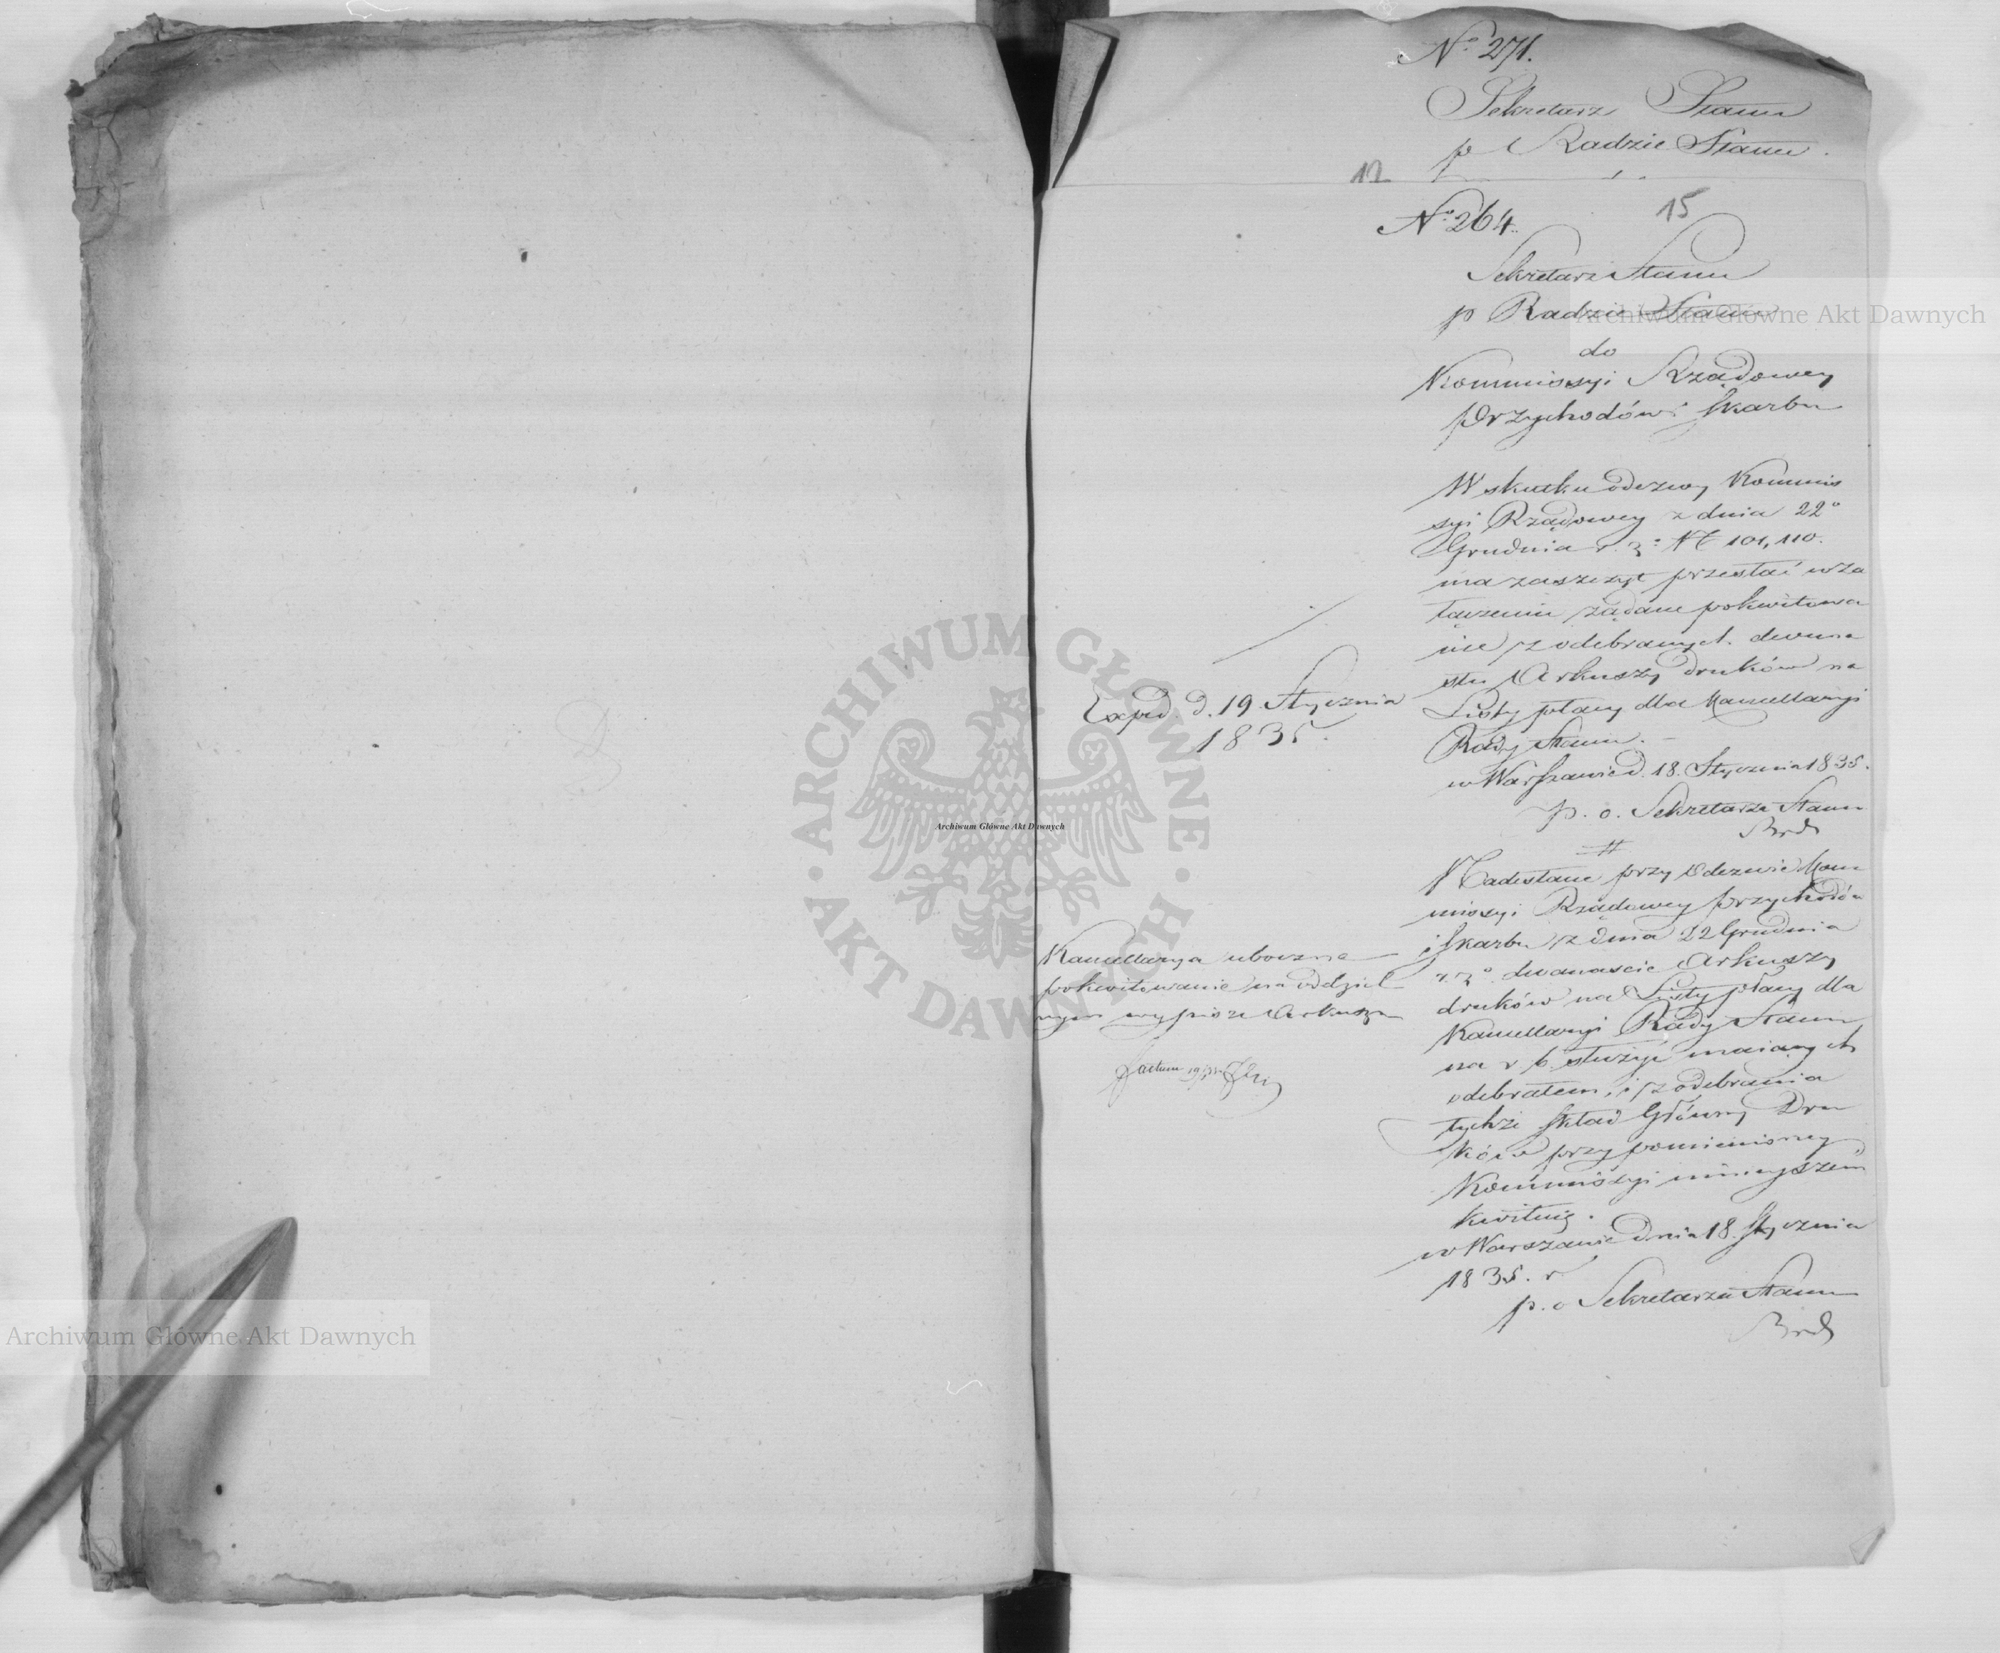 No 271.
Sekretarz Stanu
p Radzie Stanu.
12
15
No 264.
Sekretarz Stanu
p Radzie Stanu
do
Kommissyi Rządowey
Przychodów i Skarbu
W skutku odezwy Kommis
syi Rządowey z dnia 22o
Grudnia r. z: N 101,110.
ma zaszczyt przesłać w za
łączeniu żądane pokwitowa
nie z odebranych dwuna
stu Arkuszy druków na
Listy płacy dla Kancellaryi
Rady Stanu.
w Warszawie d. 18. Stycznia 1835.
p. o. Sekretarza Stanu
Exped. d. 19 Stycznia
1835.
Nadesłane przy Odezwie Kom
missyi Rządowey Przychodów
i Skarbu z dnia 22 Grudnia
r. z. dwanaście Arkuszy
druków na Listy płacy dla
Kancellaryi Rady Stanu
na r b. służyć maiących
odebrałem, i z odebrania
tychże Skład Główny Dru
ków przy pomienioney
Kommissyi ninieyszem
kwituię.
w Warszawie dnia 18. Stycznia
1835. r
p. o Sekretarza Stanu
Kancellarya uboczne
pokwitowanie na oddziel
nym wypisze Arkuszu
factum 19/1
Archiwum Główne Akt Dawnych
Archiwum Główne Akt Dawnych
Archiwum Główne Akt Dawnych
ARCHIWUM GŁÓWNE
AKT DAWNYCH